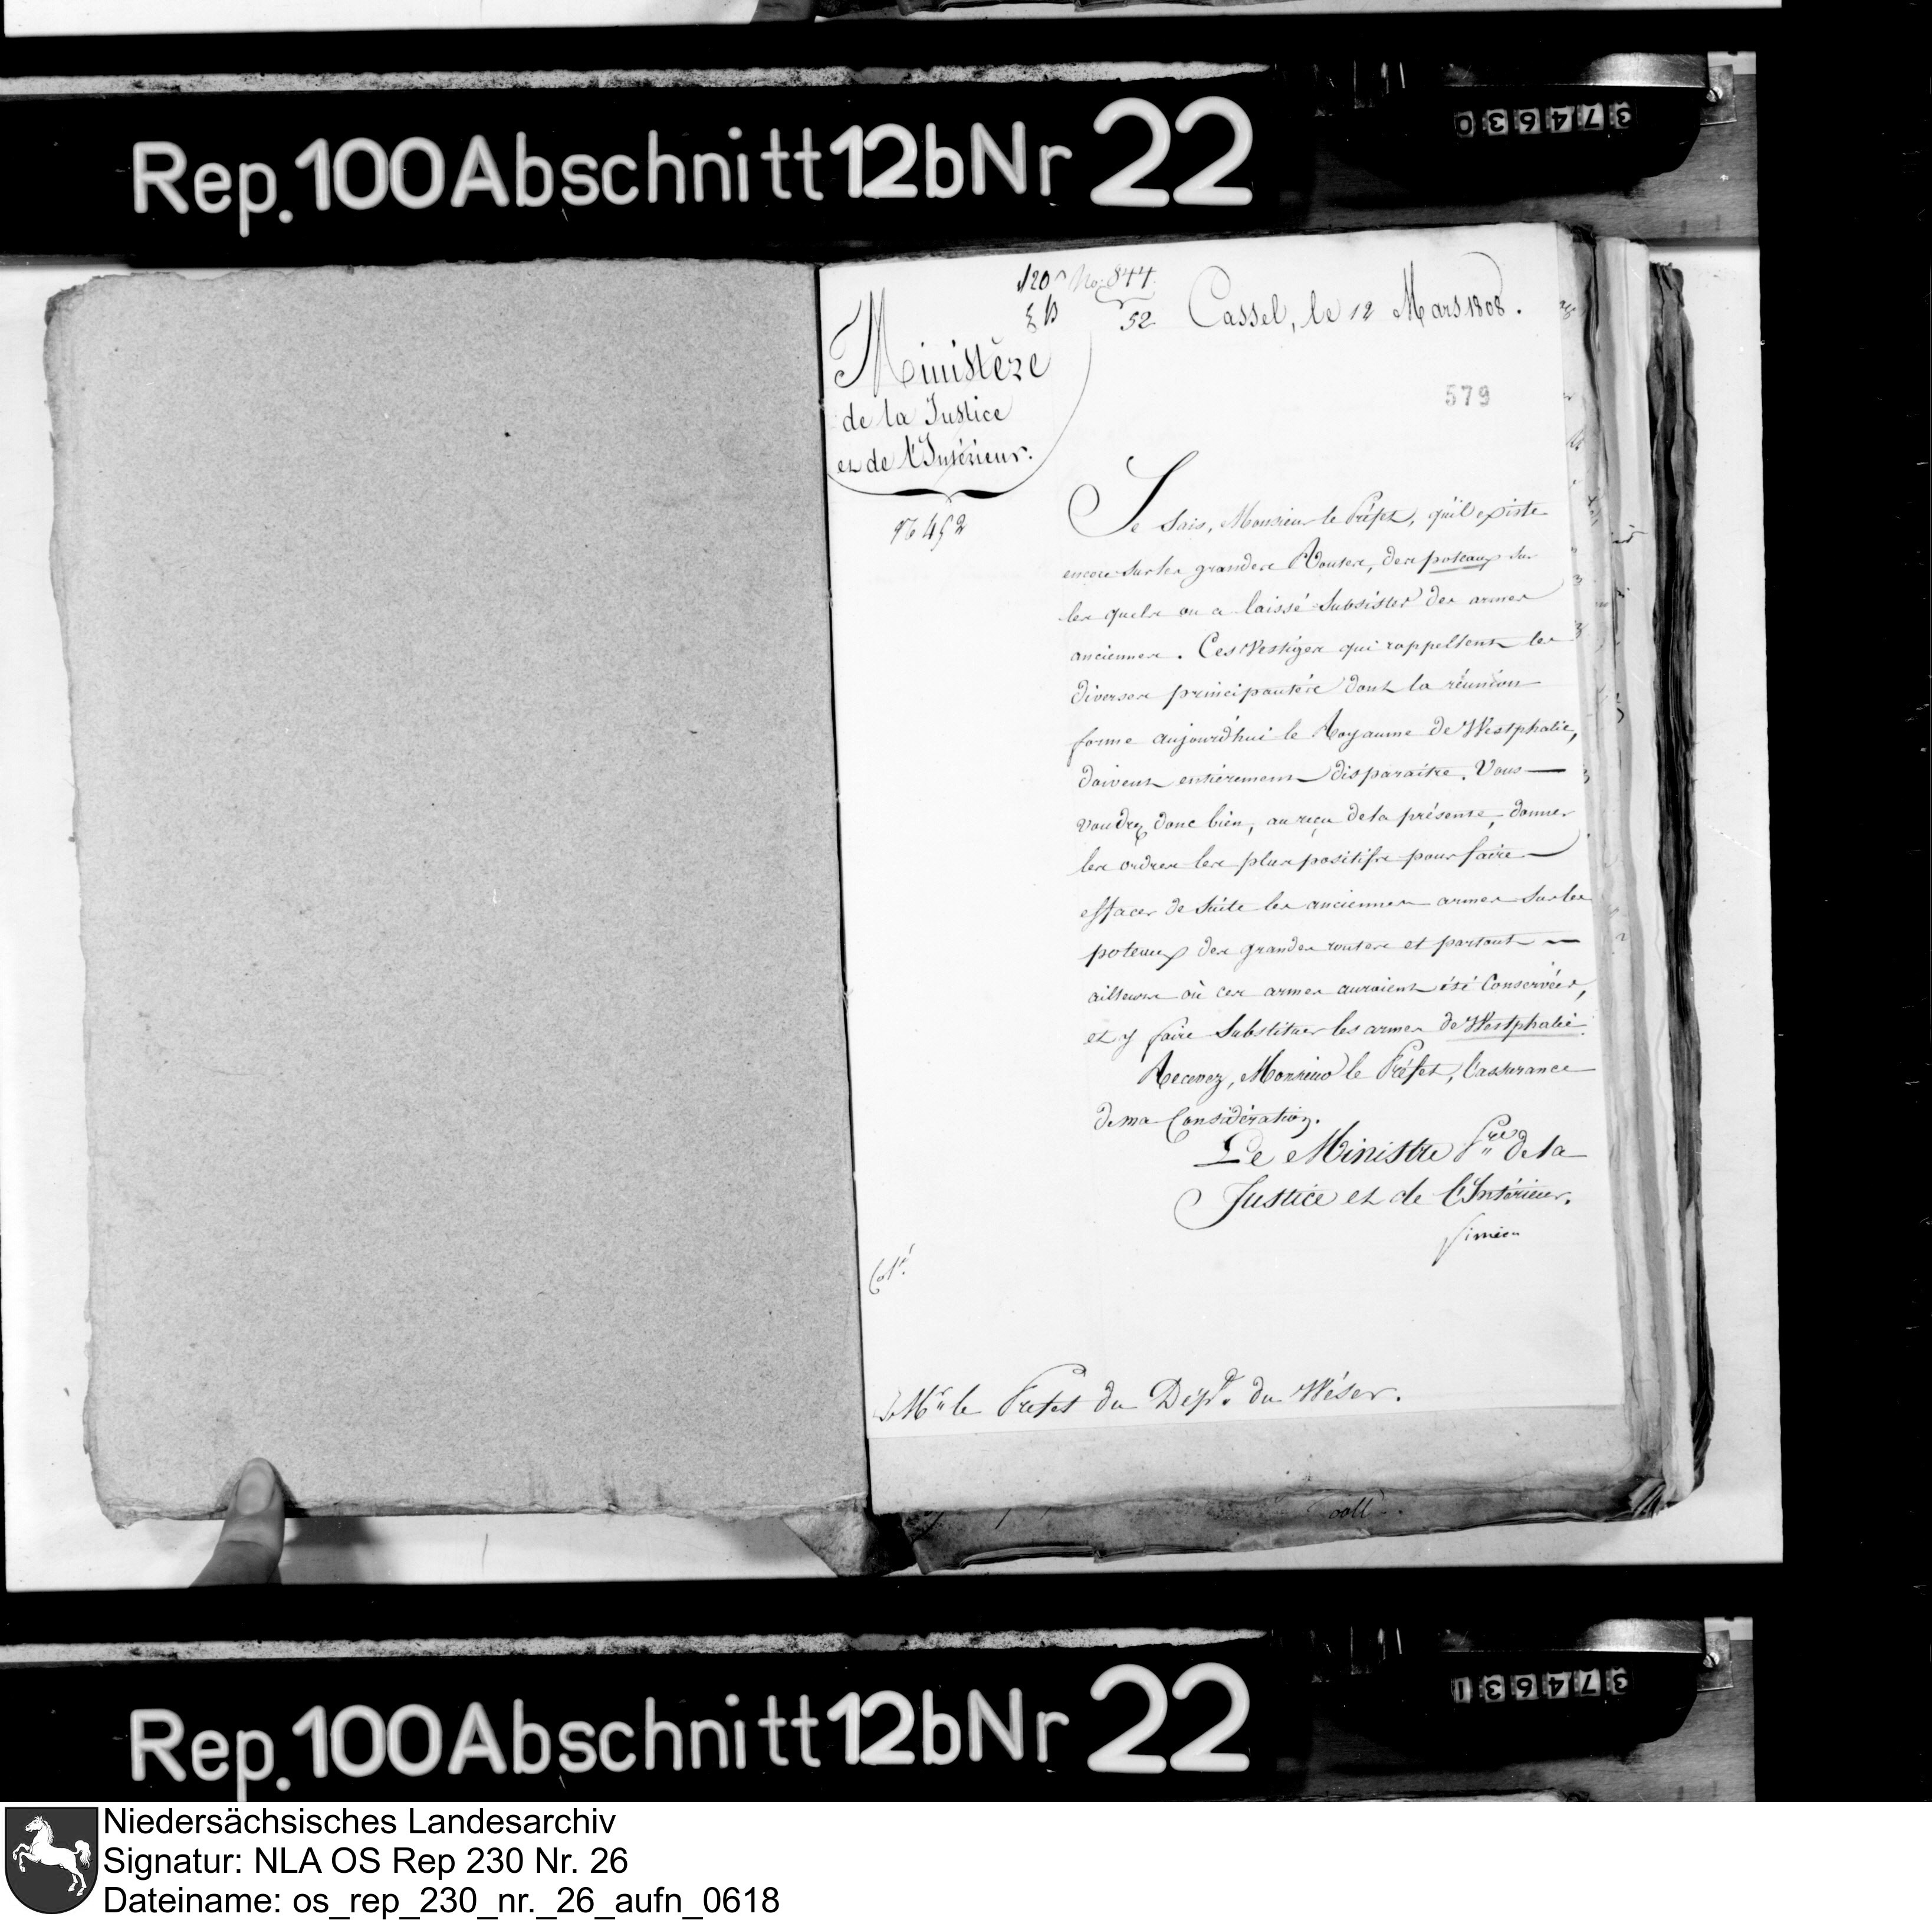 Rep. 100 Abschnitt 12b Nr 22
374630
No. 844
52
Cassel, le 12 Mars 1808.
Ministère
de la Justice
et de l'Intérieur.
579
Je sais, Monsieur le Préfet, qu'il existe
encore sur les grandes Routes, des poteaux sur
les quels on a laissé subsister des armes
anciennes. Ces Vestiges qui rappellent les
diverses principautés dont la réunion
forme aujourd'hui le Royaume de Westphalie,
doivent entièrement disparaitre. Vous
voudrez donc bien, au reçu de la présente, donner
les ordres les plus positifs pour faire
effacer de suite les anciennes armes sur les
poteaux des grandes routes et partout
ailleurs où ces armes auraient été conservées,
et y faire substituer les armes de Westphalie.
Recevez, Monsieur le Préfet, l'assurance
de ma Considération.
Le Ministre Pre de la
Justice et de l'Intérieur.
Siméon
A Mr le Prefet du Dept. du Wéser.
Rep. 100 Abschnitt 12b Nr 22
374631
Niedersächsisches Landesarchiv
Signatur: NLA OS Rep 230 Nr. 26
Dateiname: os_rep_230_nr._26_aufn_0618